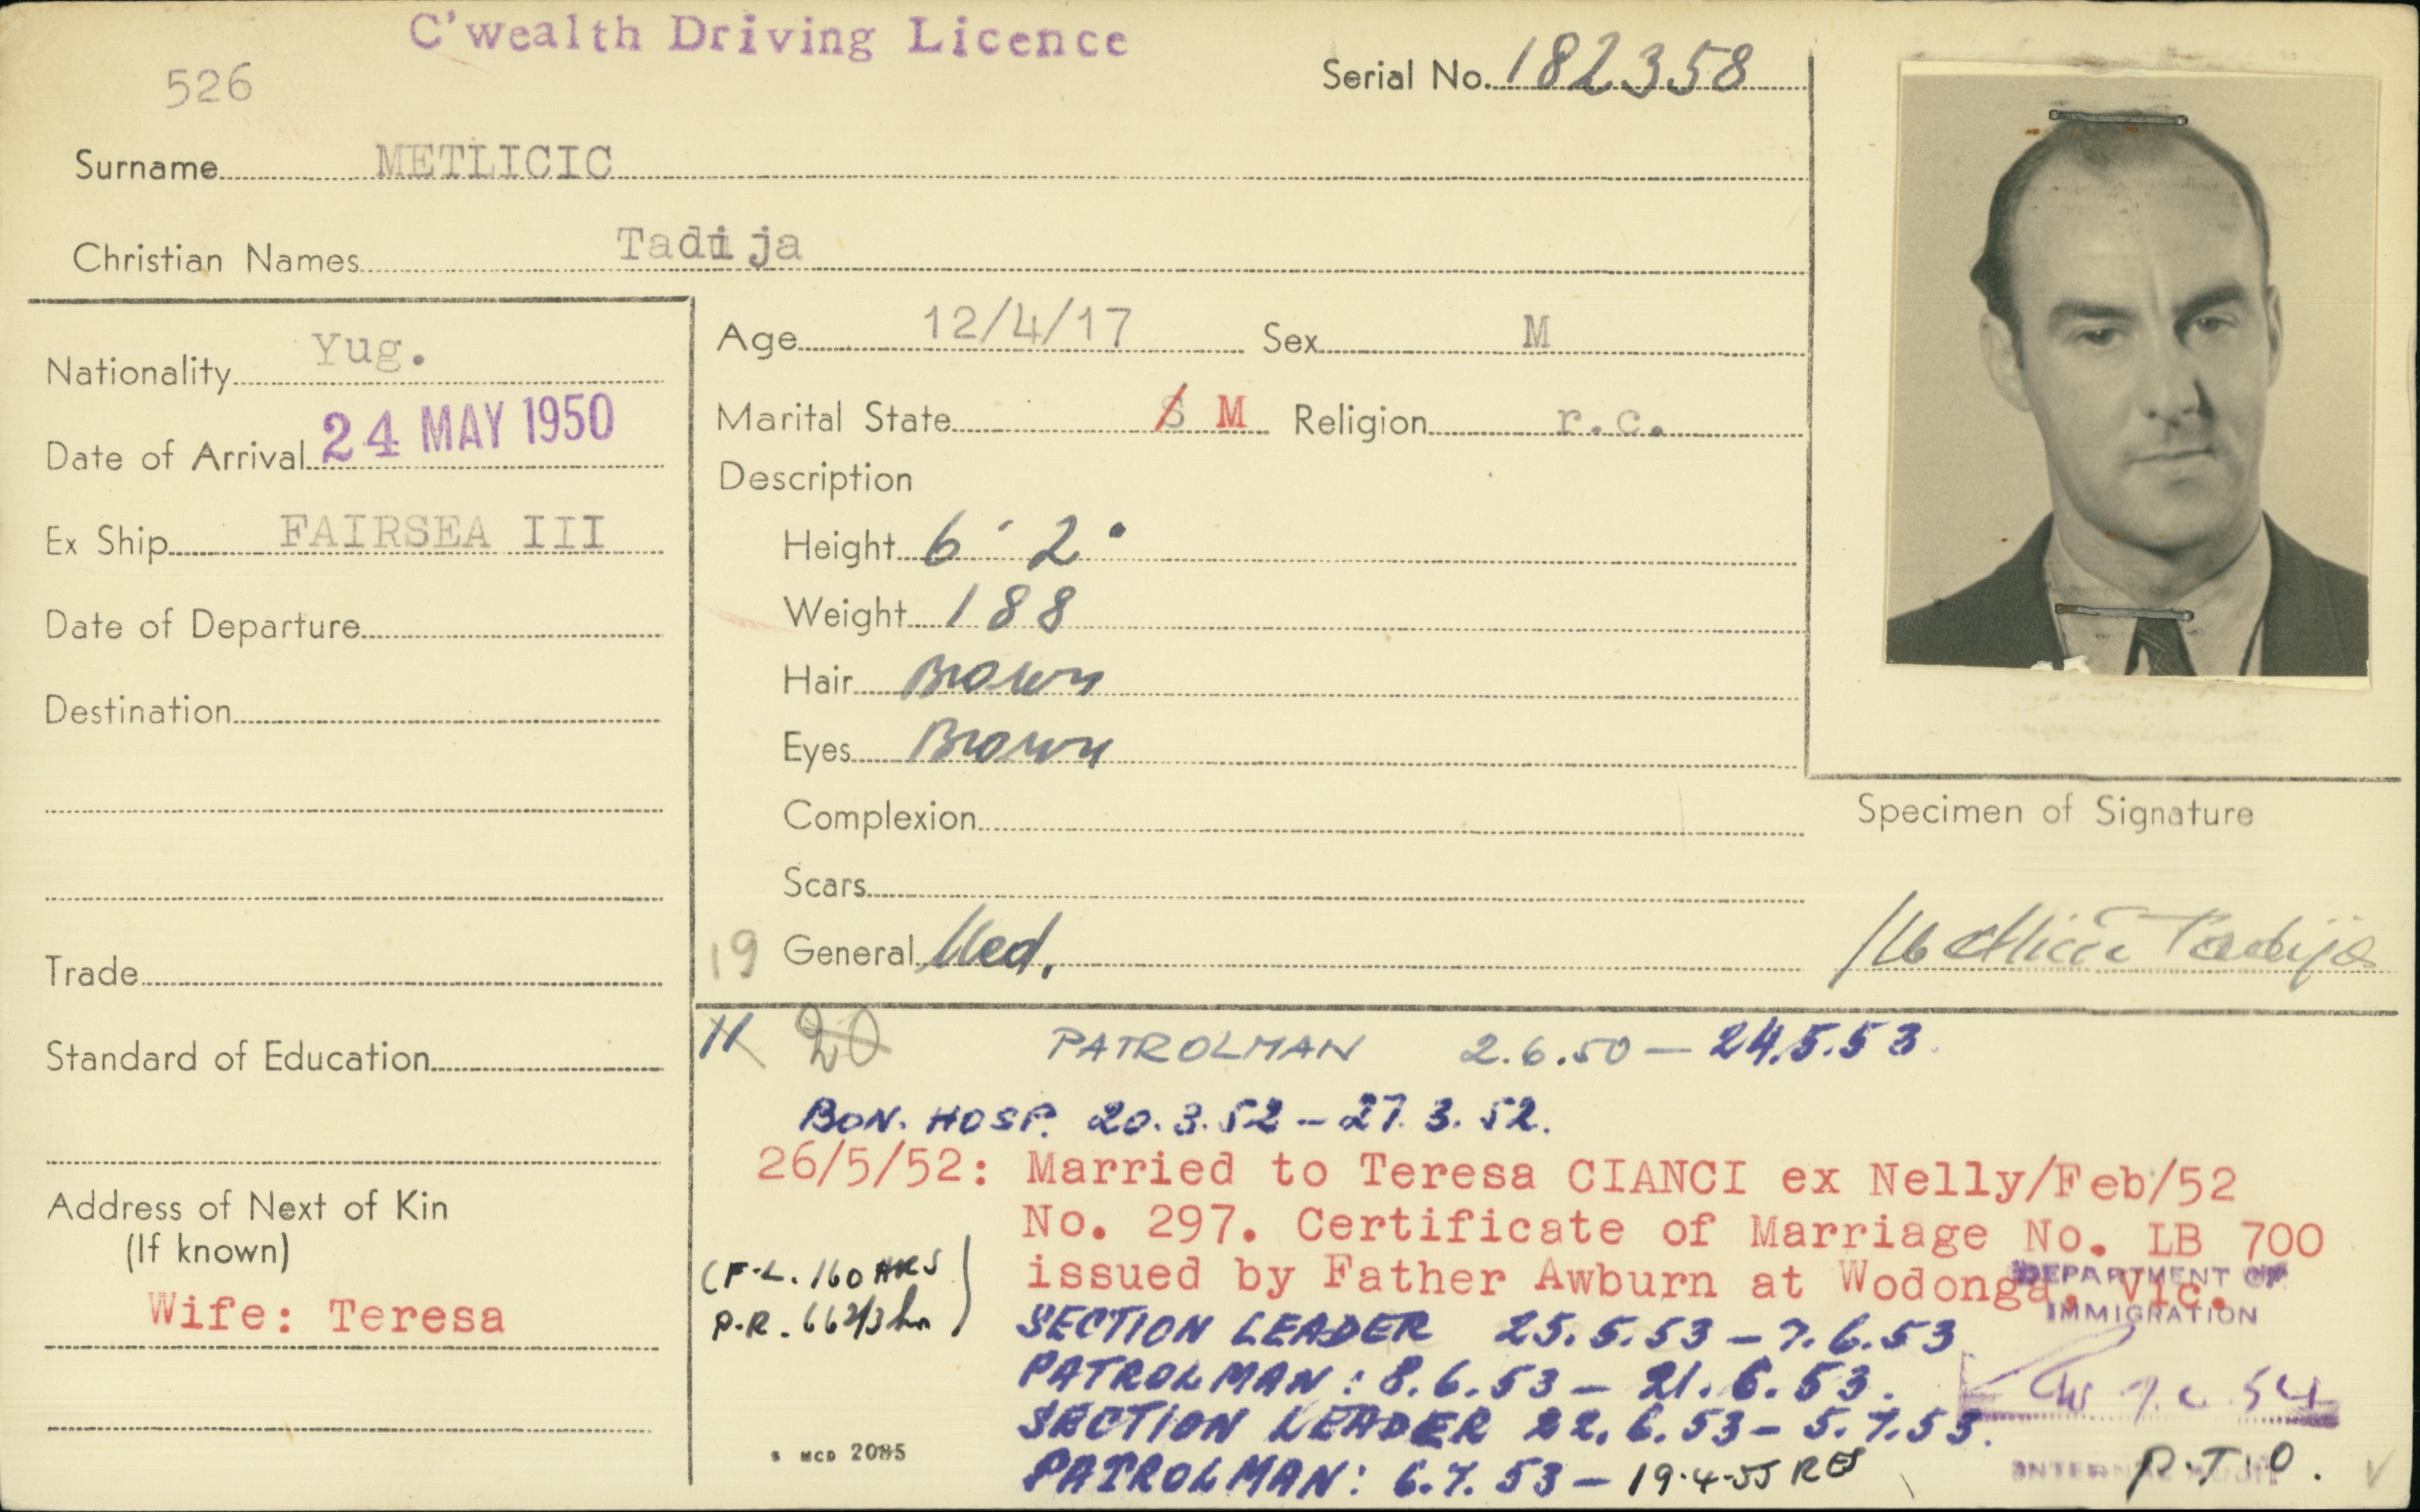 C'wealth Driving Licence
526
Serial No. 182358
Surname METLICIC
Christian Names Tadija
Nationality Yug.
Date of Arrival 24 MAY 1950
Ex Ship FAIRSEA III
Date of Departure
Destination
Trade
Standard of Education
Address of Next of Kin
(If known)
Wife: Teresa
Age 12/4/17 Sex M
Marital State S M Religion r.c.
Description
Height 6' 2"
Weight 188
Hair Brown
Eyes Brown
Complexion
Scars
19 General Med.
Specimen of Signature
Metličić Tadija
20 PATROLMAN 2.6.50 — 24.5.53.
BON. HOSP. 20.3.52 – 27.3.52.
26/5/52: Married to Teresa CIANCI ex Nelly/Feb/52
No. 297. Certificate of Marriage No. LB 700
issued by Father Awburn at Wodonga. Vic.
(F.L. 160 HRS
P.R. 66 2/3 hrs)
DEPARTMENT OF
IMMIGRATION
SECTION LEADER 25.5.53 – 7.6.53
PATROLMAN: 8.6.53 – 21.6.53.
SECTION LEADER 22.6.53 – 5.7.53.
PATROLMAN: 6.7.53 – 19.4.55 RES
INTERNAL AUDIT
P.T.O.
S MCD 2085